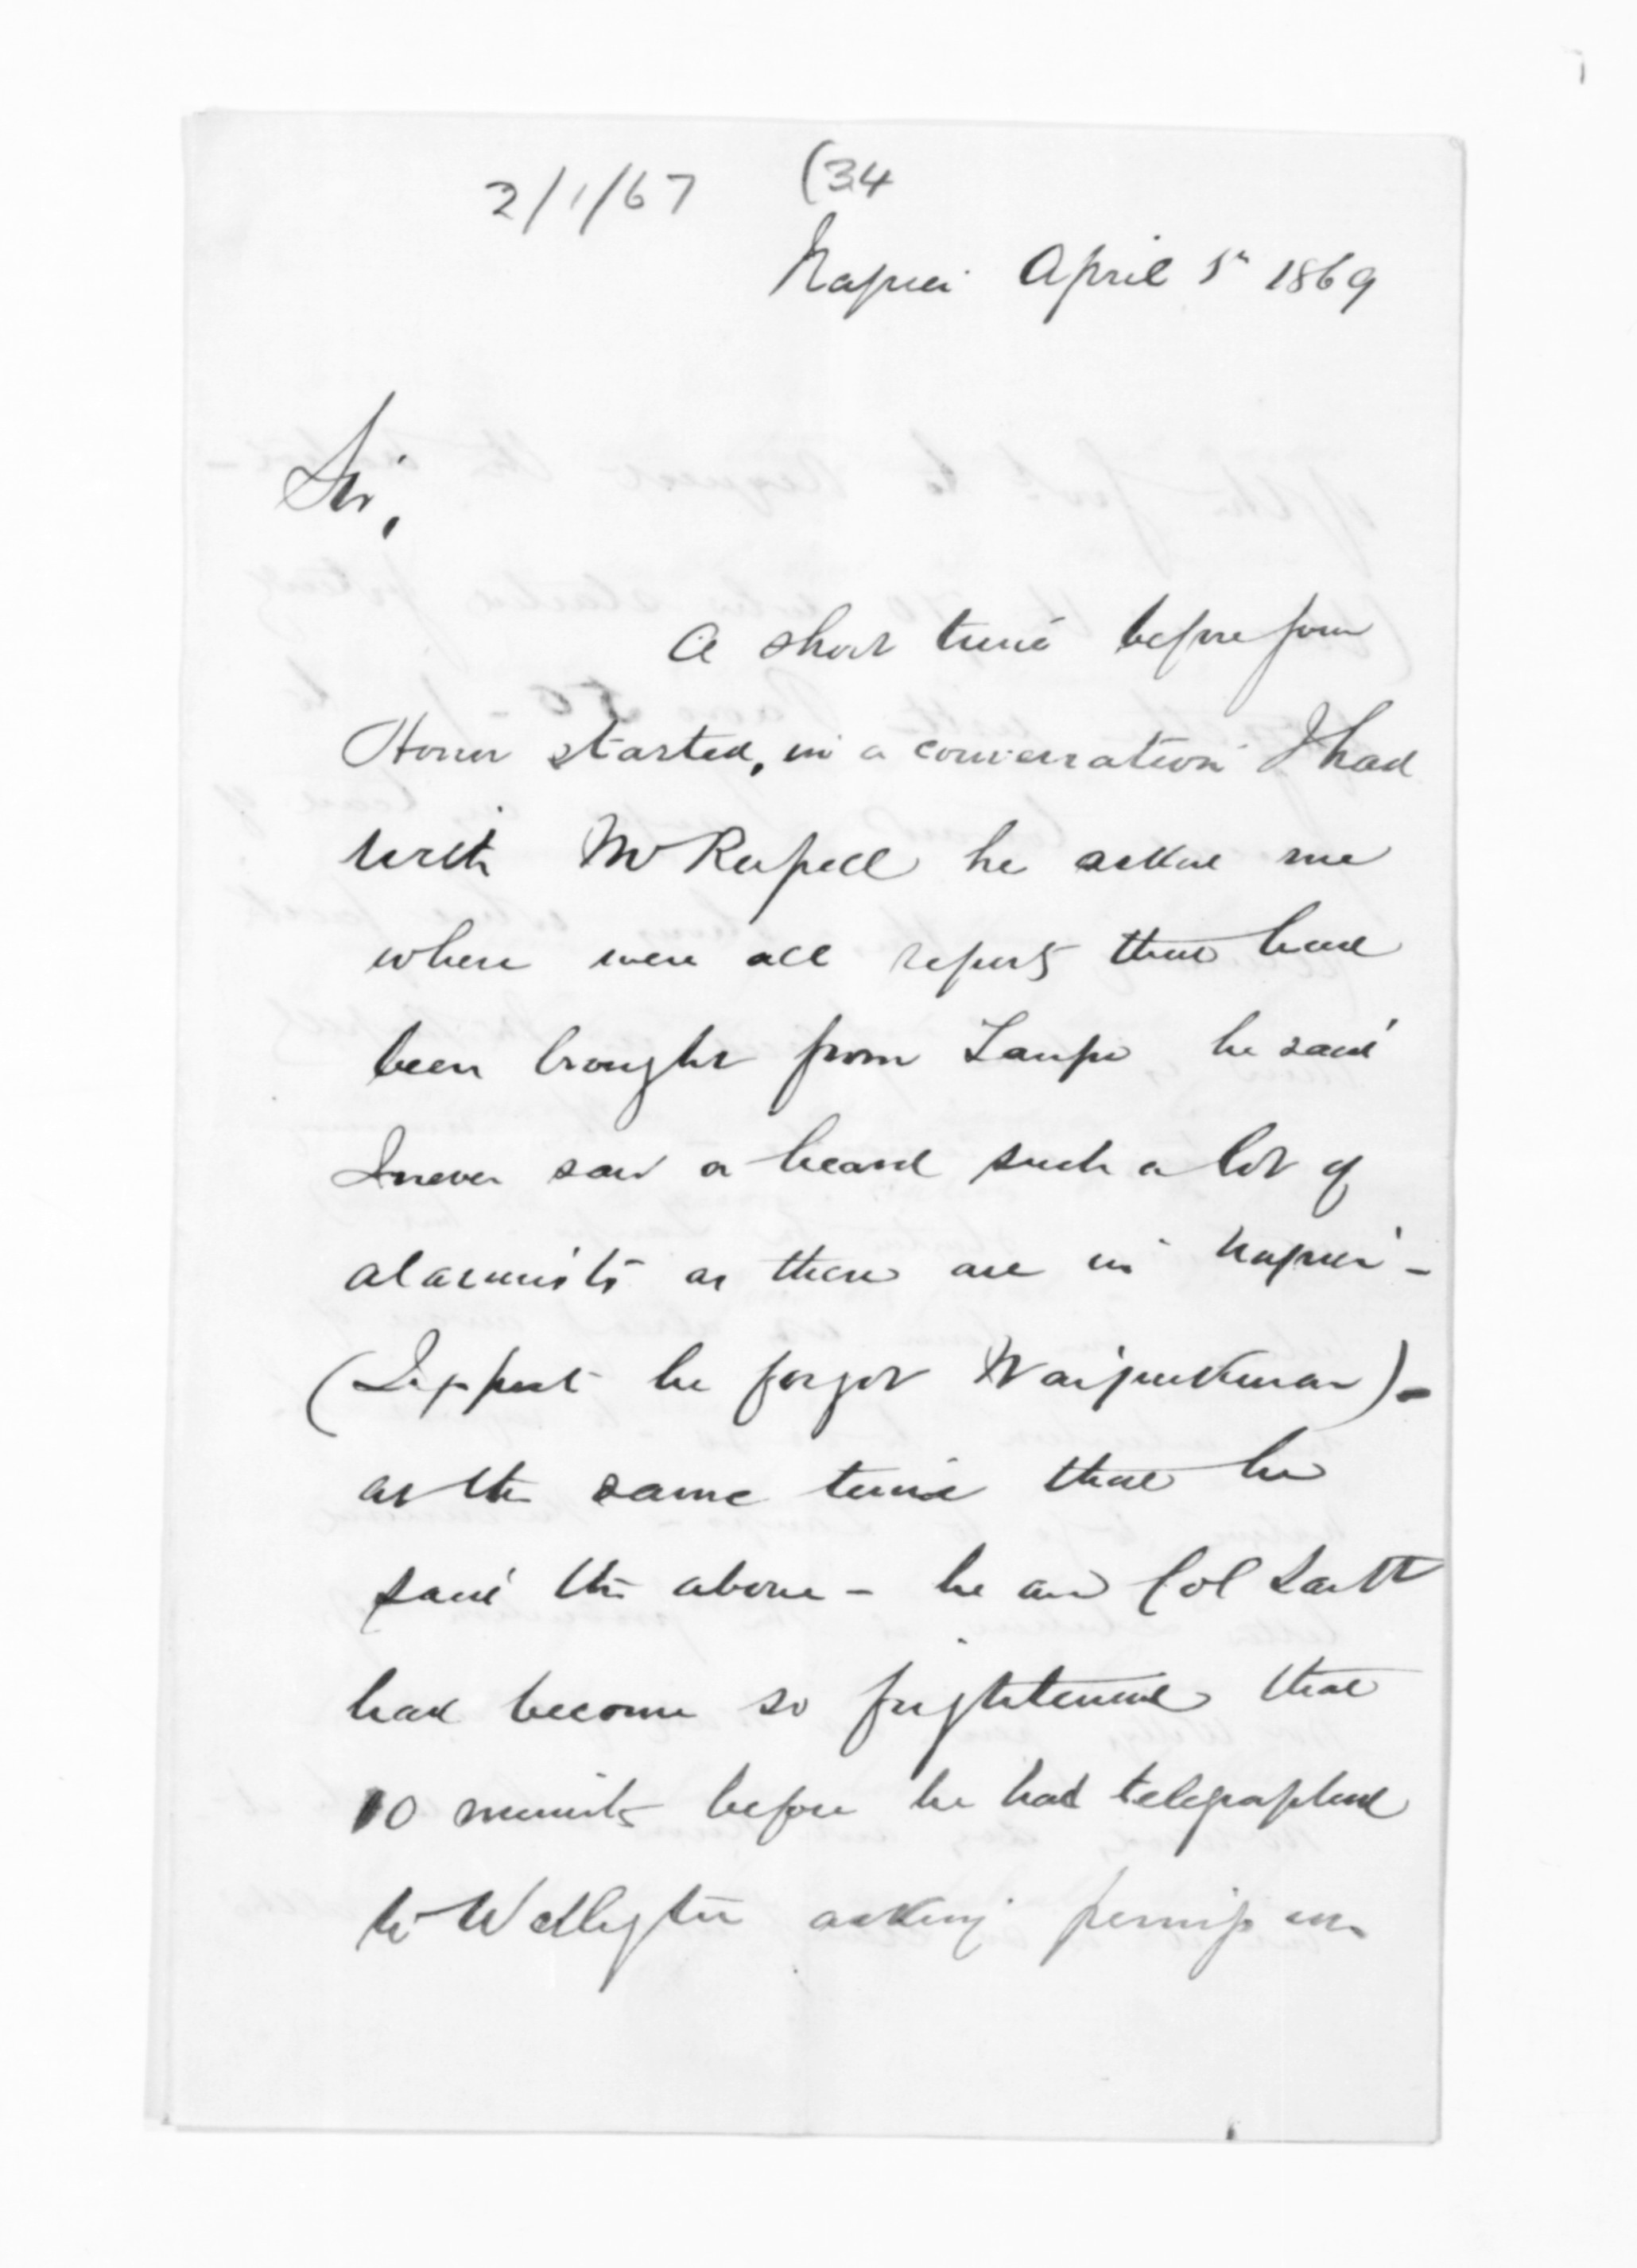 2/1/67 (34
Napier April 5th 1869
Sir,
A short time before your
Honor started, in a conversation I had
with Mr Russell he asked me
where were all reports that have
been brought from Taupo he said
I never saw or heard such a lot of
alarmists as there are in Napier -
(I expect he forgot Waipukurau) -
at the same time that he
said the above - he and Col
had become so frightened that
10 minutes before he had telegraphed
to Wellington asking permission